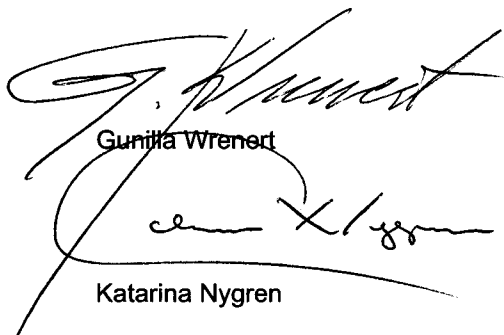 G. Wrenert
Gunilla Wrenert
Nygren
Katarina Nygren